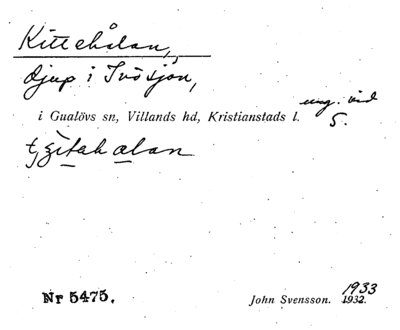 Kittehålan,
djup i Ivösjön,
ung. vid
i Gualövs sn, Villands hd, Kristianstads l. 5.
1933
Nr 5475. John Svensson. 1932.